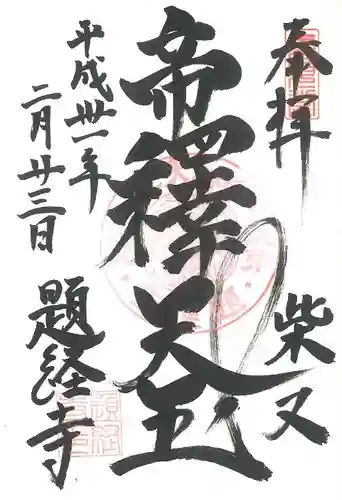 奉拝
柴又
帝釋天王
平成卅一年
二月廿三日
題経寺